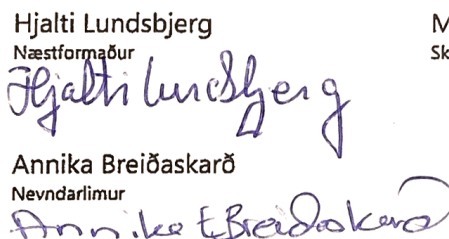 Hjalti Lundsbjerg M
Næstformaður Sk
Hjalti Lundsbjerg
Annika Breiðaskarð
Nevndarlimur
Annika E Breiðaskarð